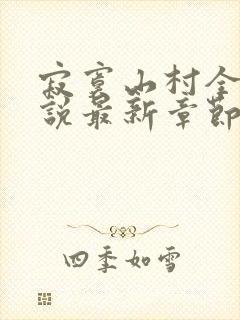 寂寞山村全
說最新章節
四季如雪